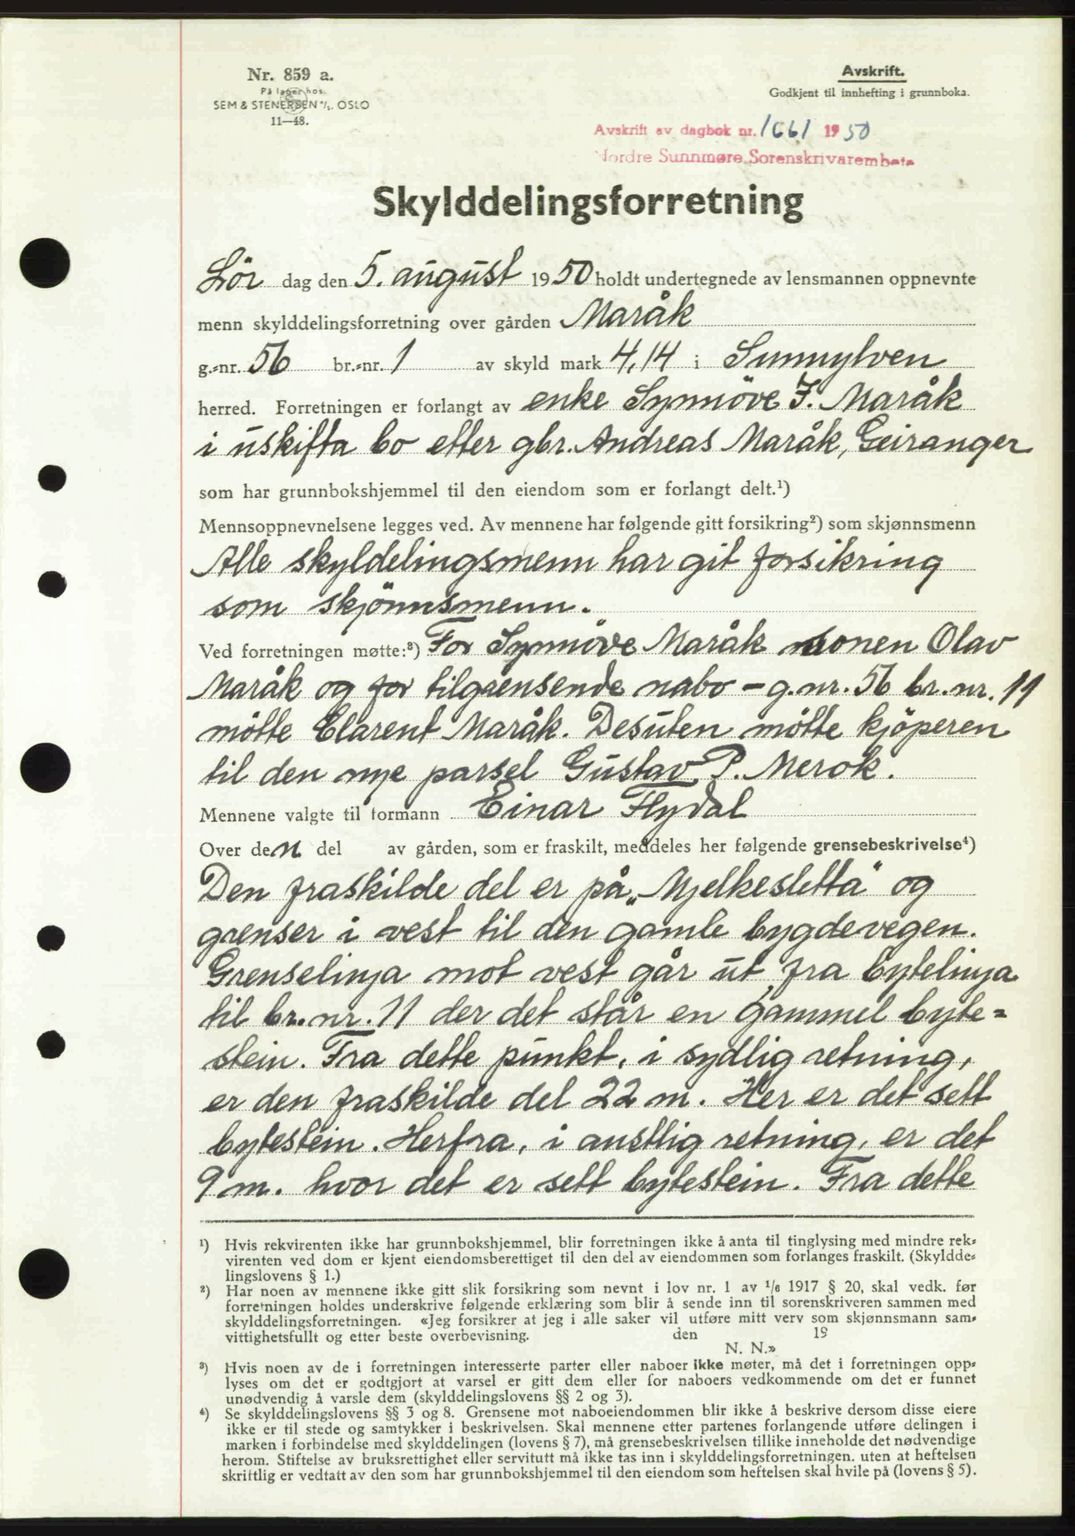 Nr. 859 a.
På lager hos.
SEM & STENERSEN A/S. OSLO
11—48.
Avskrift.
Godkjent til innhefting i grunnboka.
Avskrift av dagbok nr. 1661 1950
Nordre Sunnmøre Sorenskrivarembete
Skylddelingsforretning
Lör dag den 5. august 1950 holdt undertegnede av lensmannen oppnevnte
menn skylddelingsforretning over gården Maråk
g.-nr. 56 br.-nr. 1 av skyld mark 4,14 i Sunnylven
herred. Forretningen er forlangt av enke Synnöve J. Maråk
i uskifta bo etter gbr. Andreas Maråk, Geiranger
som har grunnbokshjemmel til den eiendom som er forlangt delt.¹)
Mennsoppnevnelsene legges ved. Av mennene har følgende gitt forsikring²) som skjønnsmenn
Alle skyldelingsmenn har git forsikring
som skjönnsmenn.
Ved forretningen møtte:³) For Synnöve Maråk sonen Olav
Maråk og for tilgrensende nabo - g.nr. 56 br.nr. 11
mötte Elarent Maråk. Desuten mötte kjöperen
til den nye parsel Gustav P. Merok.
Mennene valgte til formann Einar Flydal
Over den del av gården, som er fraskilt, meddeles her følgende grensebeskrivelse⁴)
Den fraskilde del er på „Mjelkesletta" og
grenser i vest til den gamle bygdevegen.
Grenselinja mot vest går ut fra bytelinja
til br.nr. 11 der det står en gammel byte=
stein. Fra dette punkt, i sydlig retning,
er den fraskilde del 22 m. Her er det sett
bytestein. Herfra, i austlig retning, er det
9 m. hvor det er sett bytestein. Fra dette
¹) Hvis rekvirenten ikke har grunnbokshjemmel, blir forretningen ikke å anta til tinglysing med mindre rek-
virenten ved dom er kjent eiendomsberettiget til den del av eiendommen som forlanges fraskilt. (Skyldde-
lingslovens § 1.)
²) Har noen av mennene ikke gitt slik forsikring som nevnt i lov nr. 1 av ¹/₆ 1917 § 20, skal vedk. før
forretningen holdes underskrive følgende erklæring som blir å sende inn til sorenskriveren sammen med
skylddelingsforretningen. «Jeg forsikrer at jeg i alle saker vil utføre mitt verv som skjønnsmann sam-
vittighetsfullt og etter beste overbevisning. den 19
N. N.»
³) Hvis noen av de i forretningen interesserte parter eller naboer ikke møter, må det i forretningen opp-
lyses om det er godtgjort at varsel er gitt dem eller for naboers vedkommende om det er funnet
unødvendig å varsle dem (skylddelingslovens §§ 2 og 3).
⁴) Se skylddelingslovens §§ 3 og 8. Grensene mot naboeiendommen blir ikke å beskrive dersom disse eiere
ikke er til stede og samtykker i beskrivelsen. Skal mennene etter partenes forlangende utføre delingen i
marken i forbindelse med skylddelingen (lovens § 7), må grensebeskrivelsen tillike inneholde det nødvendige
herom. Stiftelse av bruksrettighet eller servitutt må ikke tas inn i skylddelingsforretningen, uten at heftelsen
skriftlig er vedtatt av den som har grunnbokshjemmel til den eiendom som heftelsen skal hvile på (lovens § 5).